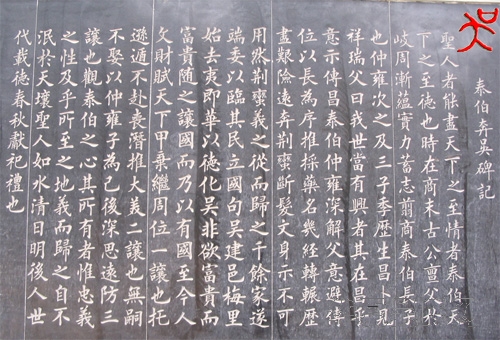 泰伯奔吳碑記
聖人者能盡天下之至情者泰伯天
下之至德也時在商末古公亶父於
岐周漸蘊實力蓄志翦商泰伯長子
也仲雍次之及三子季歷生昌卜見
祥瑞父曰我世當有興者其在昌乎
意示傳昌泰伯仲雍深解父意避傳
位以長為序推採藥名幾經轉輾歷
盡艱險遠奔荆蠻斷髮文身示不可
用然荆蠻義之從而歸之千餘家遂
端委以臨其民立國句吳建邑梅里
始去夷即華以德化吳非欲富貴而
富貴隨之讓國而乃以有國至今人
文財賦天下甲季繼周位一讓也托
遜遁不赴喪潛推大義二讓也無嗣
不娶以仲雍子為己後深思遠防三
讓也觀泰伯之心其所有者惟忠義
之性及乎所至之地義而歸之自不
泯於天壤聖人如水清日明後人世
代載德春秋獻祀禮也